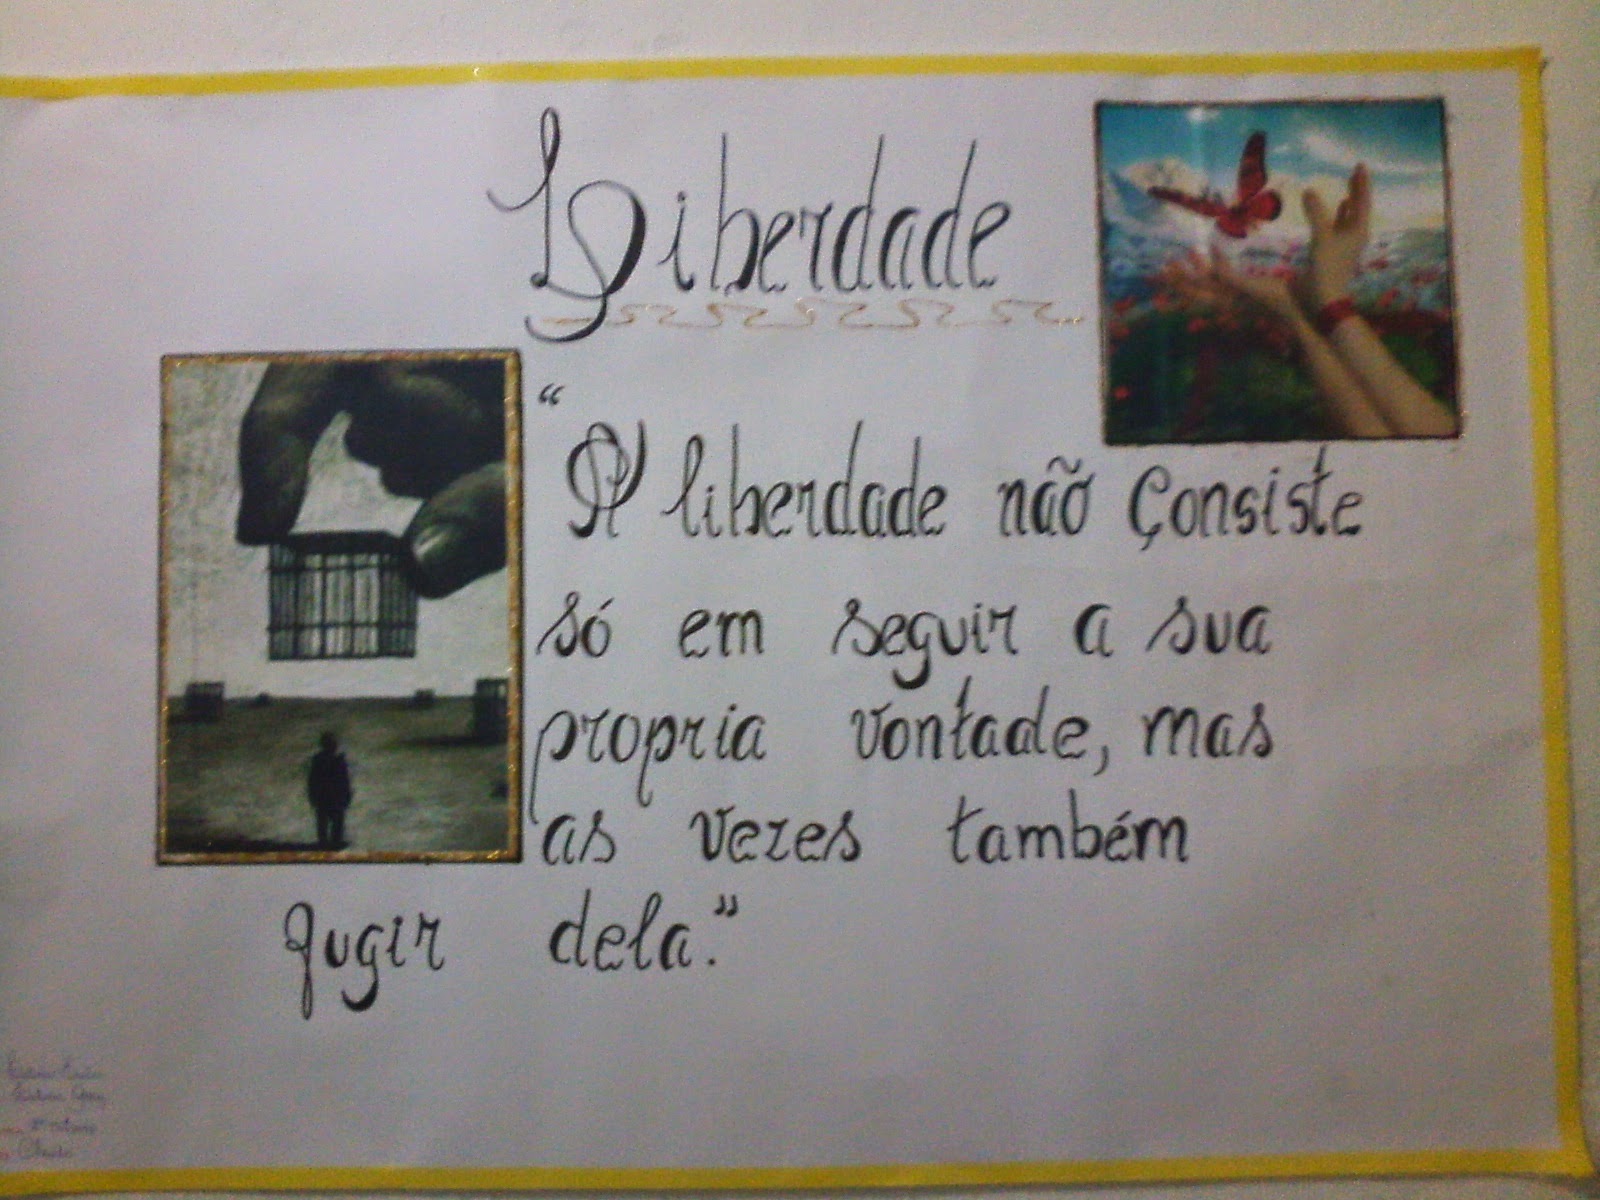 Liberdade
“
A liberdade não Consiste
só em seguir a sua
propria vontade, mas
as vezes também
fugir dela.”